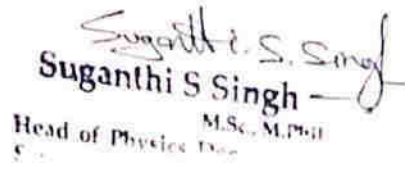 Suganthi. S. Singh
Suganthi S Singh
M.Sc., M.Phil
Head of Physics